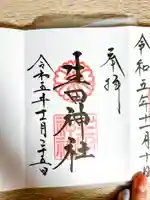 令和五年十一月十
奉拝
生田神社
令和五年十一月二十五日